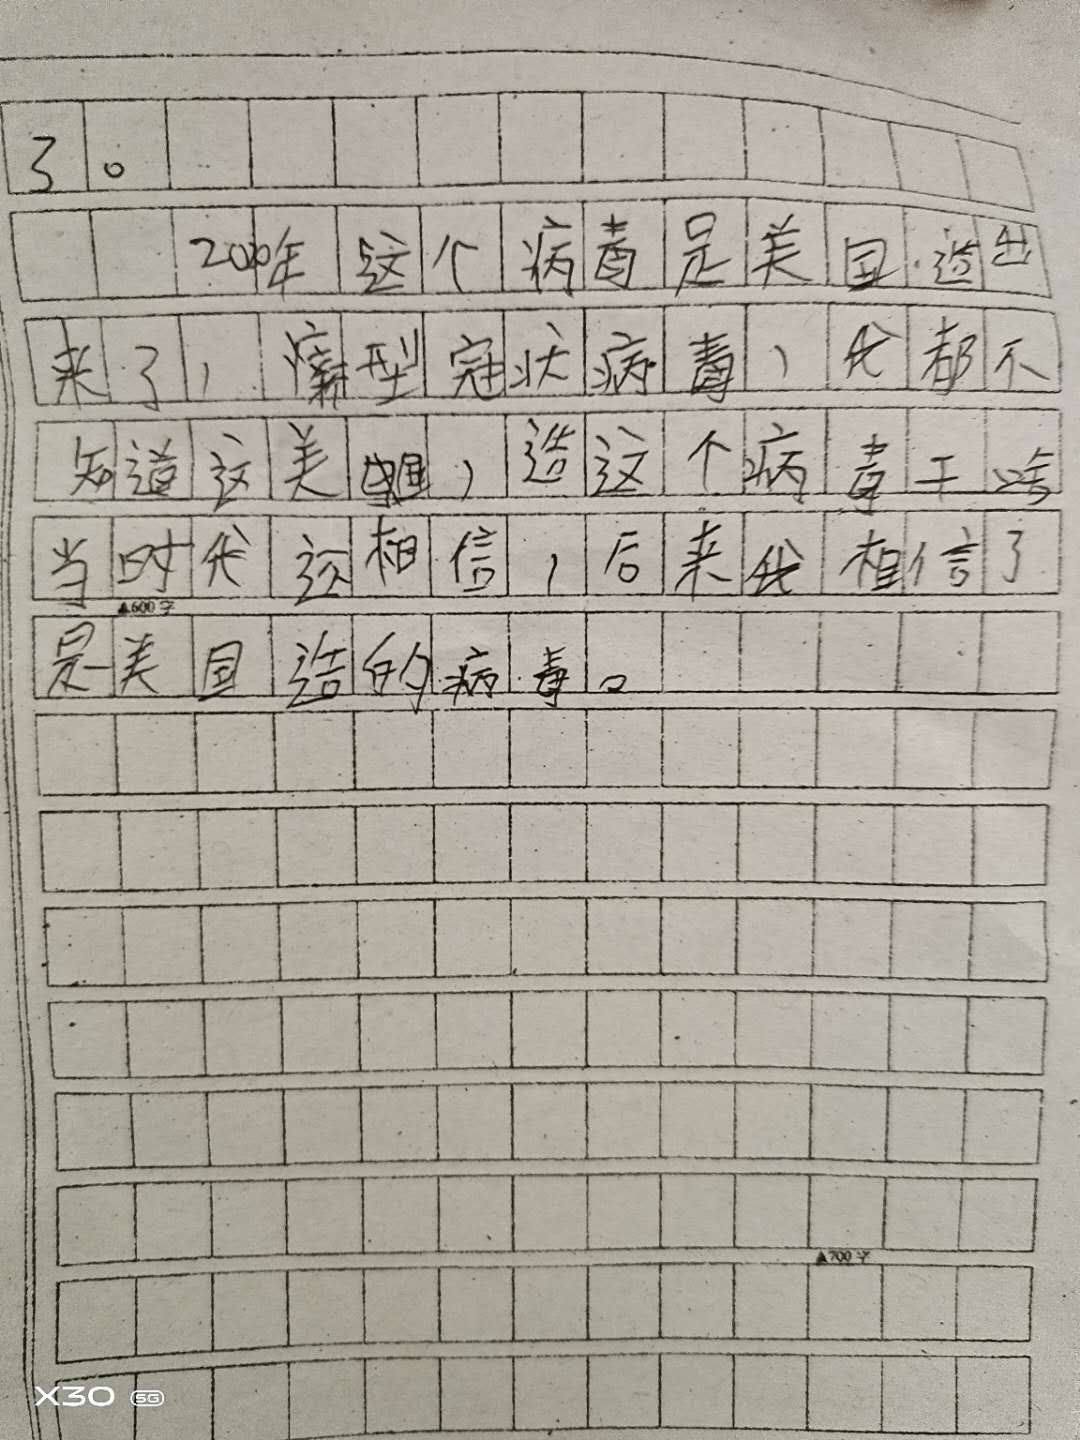 了。
2020年这个病毒是美国造出
来了，新型冠状病毒，我都不
知道这美国，造这个病毒干啥
当时我没相信，后来我相信了
▲600字
是美国造的病毒。
▲700字
X30 5G